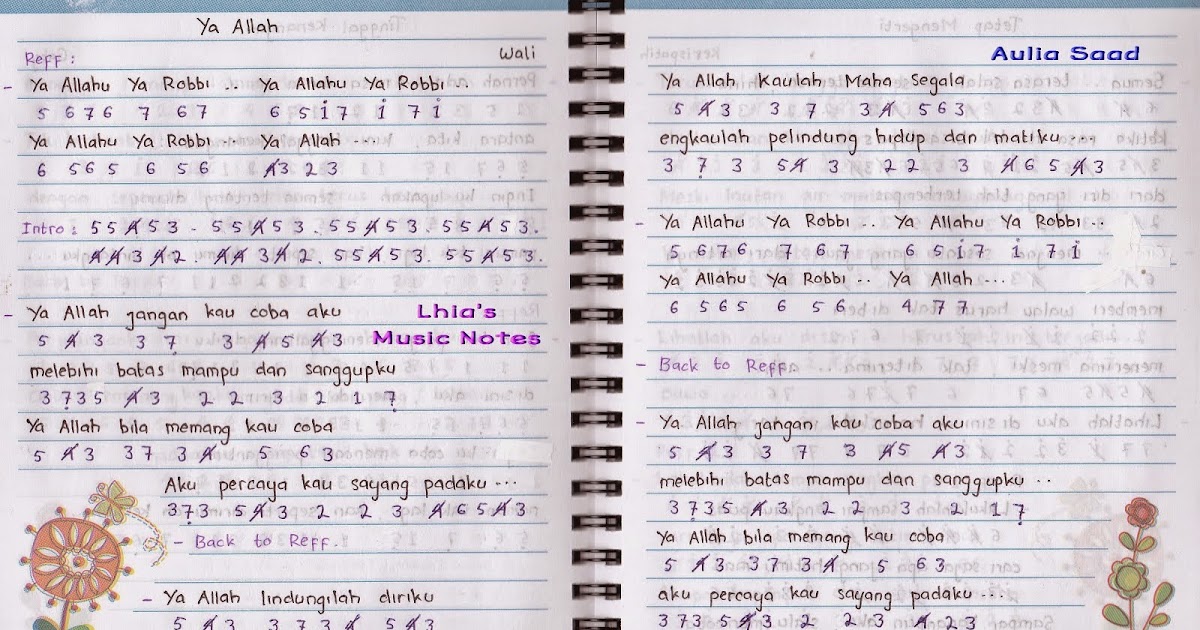 Ya Allah
Reff :
Wali
- Ya Allahu Ya Robbi .. Ya Allahu Ya Robbi ..
5 6 7 6 7 6 7 6 5 i 7 i 7 i
Ya Allahu Ya Robbi ... Ya Allah ....
6 5 6 5 6 5 6 4̸ 3 2 3
Intro : 5 5 4̸ 5 3 . 5 5 4̸ 5 3 . 5 5 4̸ 5 3 . 5 5 4̸ 5 3 .
4̸ 4̸ 3 4̸ 2 . 4̸ 4̸ 3 4̸ 2 . 5 5 4̸ 5 3 . 5 5 4̸ 5 3 .
- Ya Allah jangan kau coba aku
Lhia's
Music Notes
5 4̸ 3 3 7̣ 3 4̸ 5 4̸ 3
melebihi batas mampu dan sanggupku
3 7̣ 3 5 4̸ 3 2 2 3 2 1 7̣
Ya Allah bila memang kau coba
5 4̸ 3 3 7 3 4̸ 5 6 3
Aku percaya kau sayang padaku ...
3 7̣ 3 5 4̸ 3 2 2 3 4̸ 6 5 4̸ 3
- Back to Reff.
- Ya Allah lindungilah diriku
5 4̸ 3 3 7 3 4̸ 5 4̸ 3
Aulia Saad
Ya Allah kaulah Maha Segala
5 4̸ 3 3 7 3 4̸ 5 6 3
engkaulah pelindung hidup dan matiku ....
3 7̣ 3 5 4̸ 3 2 2 3 4̸ 6 5 4̸ 3
- Ya Allahu Ya Robbi .. Ya Allahu Ya Robbi ..
5 6 7 6 7 6 7 6 5 i 7 i 7 i
Ya Allahu Ya Robbi .. Ya Allah ...
6 5 6 5 6 5 6 4 7 7
- Back to Reff
- Ya Allah jangan kau coba aku
5 4̸ 3 3 7 3 4̸ 5 4̸ 3
melebihi batas mampu dan sanggupku ..
3 7 3 5 4̸ 3 2 2 3 2 1 7̣
Ya Allah bila memang kau coba
5 4̸ 3 3 7 3 4̸ 5 6 3
aku percaya kau sayang padaku ...
3 7 3 5 4̸ 3 2 2 3 4̸ 2 3